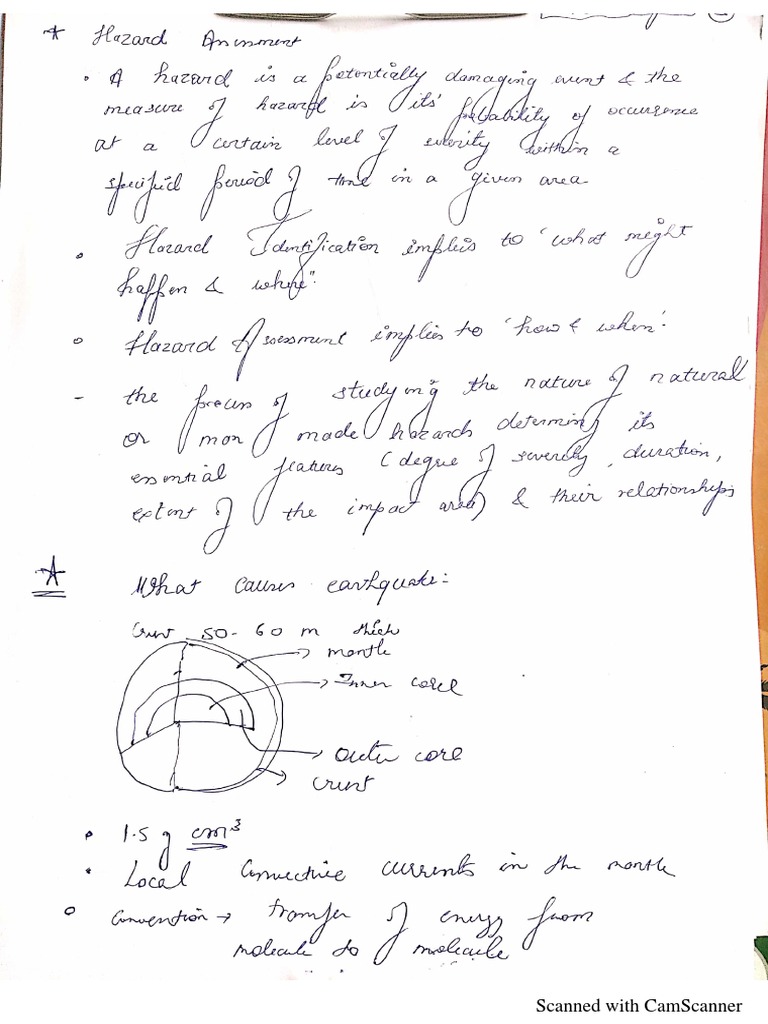 * Hazard Assessment
• A hazard is a potentially damaging event & the
measure of hazard is its' probability of occurrence
at a certain level of severity within a
specified period of time in a given area
• Hazard Identification implies to 'what might
happen & where".
• Hazard Assessment implies to 'how & when'.
- the process of studying the nature of natural
or man made hazards determining its
essential features (degree of severity, duration,
extent of the impact area) & their relationships
* What causes earthquake:
Crust 50-60 m thick
mantle
Inner core
outer core
crust
• 1.5 g cm³
• Local convective currents in the mantle
• Convention → transfer of energy from
molecule to molecule
Scanned with CamScanner